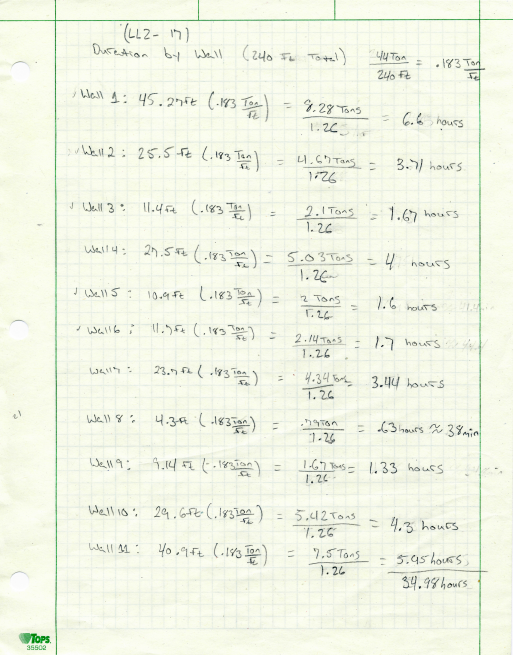 (LL2-17)
Duration by Wall (240 ft Total) 44 Ton / 240 ft = .183 Ton/ft
Wall 1: 45.27ft (.183 Ton/ft) = 8.28 Tons / 1.26 = 6.6 hours
Wall 2: 25.5 ft (.183 Ton/ft) = 4.67 Tons / 1.26 = 3.71 hours
Wall 3: 11.4ft (.183 Ton/ft) = 2.1 Tons / 1.26 = 1.67 hours
Wall 4: 27.5ft (.183 Ton/ft) = 5.03 Tons / 1.26 = 4 hours
Wall 5: 10.9ft (.183 Ton/ft) = 2 Tons / 1.26 = 1.6 hours
Wall 6: 11.7ft (.183 Ton/ft) = 2.14 Tons / 1.26 = 1.7 hours
Wall 7: 23.7ft (.183 Ton/ft) = 4.34 Tons / 1.26 = 3.44 hours
Wall 8: 4.3ft (.183 Ton/ft) = .79 Ton / 1.26 = .63 hours ≈ 38 min
Wall 9: 9.14 ft (.183 Ton/ft) = 1.67 Tons / 1.26 = 1.33 hours
Wall 10: 29.6ft (.183 Ton/ft) = 5.42 Tons / 1.26 = 4.3 hours
Wall 11: 40.9ft (.183 Ton/ft) = 7.5 Tons / 1.26 = 5.95 hours
34.98 hours
TOPS
35502